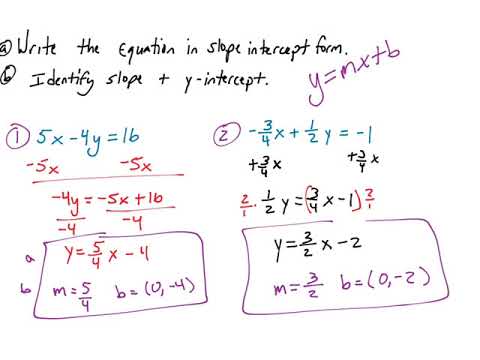 ⓐ Write the Equation in slope intercept form.
ⓑ Identify slope + y-intercept.
y=mx+b
① 5x-4y=16
-5x -5x
-4y = -5x+16
-4 -4
a y = 5/4 x - 4
b m = 5/4 b = (0,-4)
② -3/4 x + 1/2 y = -1
+3/4 x +3/4 x
2/1 · 1/2 y = (3/4 x - 1) 2/1
y = 3/2 x - 2
m = 3/2 b = (0,-2)